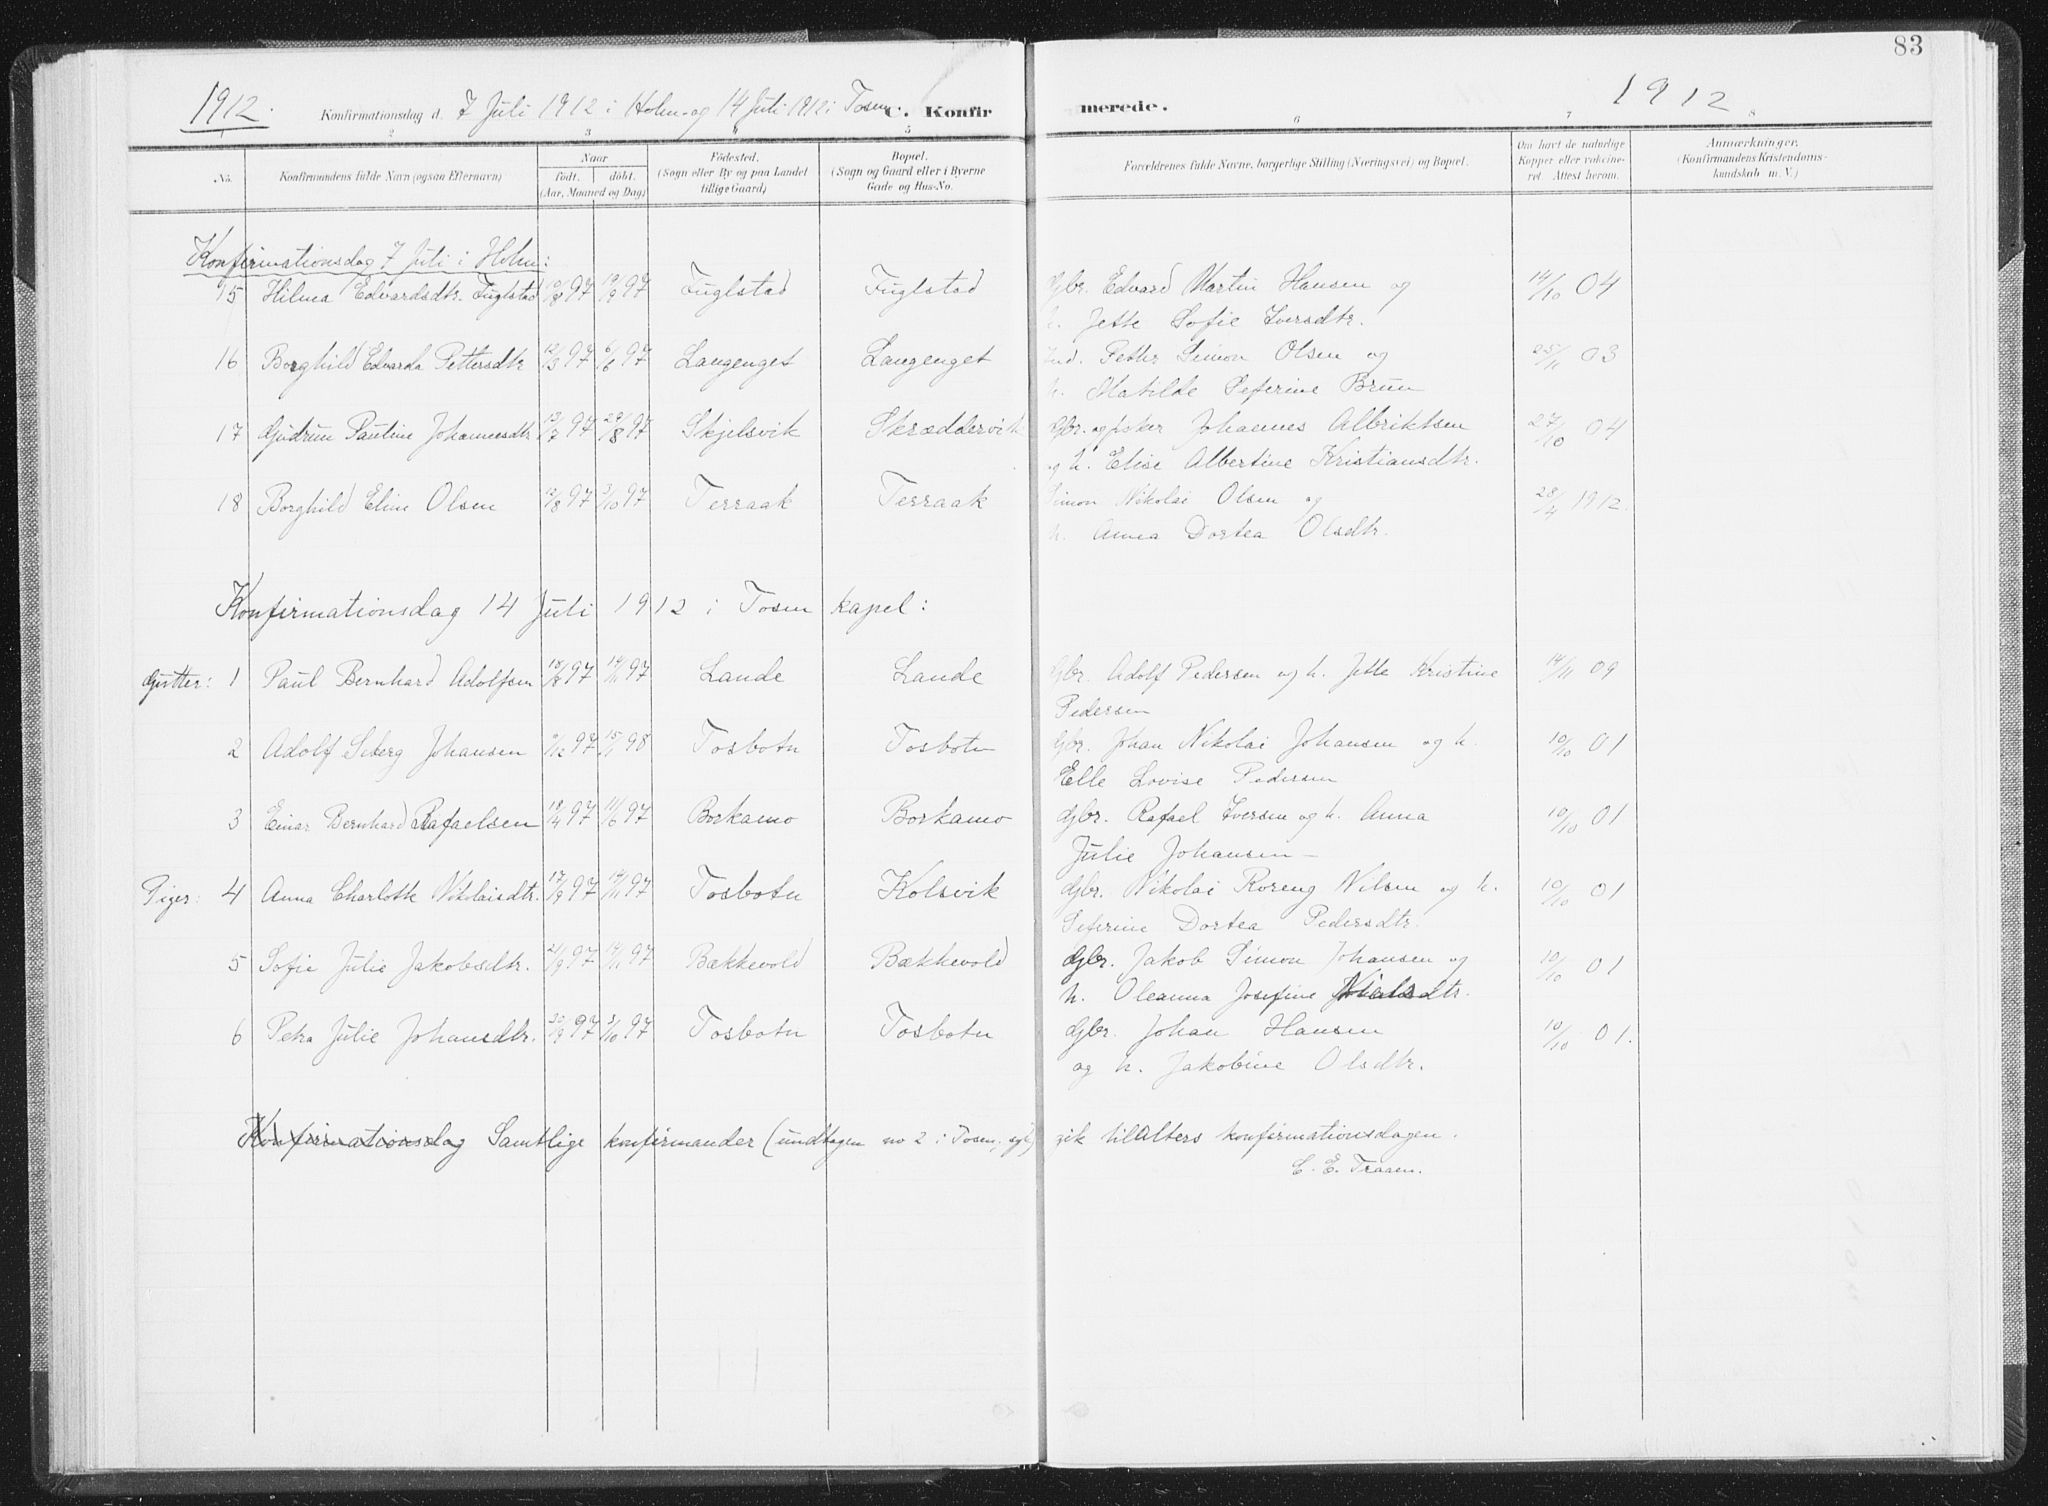 83
1912. Konfirmationsdag d. 7 Juli 1912 i Holm og 14 Juli 1912 i Tosen C. Konfirmerede. 1912
1 2 3 4 5 6 7 8
No. Konfirmandens fulde Navn (ogsaa Efternavn) Naar født. døbt. (Aar, Maaned og Dag) Fødested. (Sogn eller By og paa Landet tillige Gaard) Bopæl. (Sogn og Gaard eller i Byerne Gade og Hus-No. Forældrenes fulde Navne, borgerlige Stilling (Næringsvei) og Bopæl. Om havt de naturlige Kopper eller vaccineret Attest herom. Anmærkninger. (Konfirmandens Kristendomskundskab m. V.)
Konfirmationsdag 7 Juli i Holm:
15 Hilma Edvardsdtr. Fuglstad 10/8 97 19/9 97 Fuglstad Fuglstad Gbr. Edvard Martin Hansen og 14/10 04
h. Jette Sofie Iversdtr.
16 Borghild Edvarda Pettersdtr 12/3 97 6/6 97 Langenget Langenget Ind. Petter Simon Olsen og 25/11 03
h. Matilde Seferine Brun
17 Gudrun Pauline Johannesdtr 13/7 97 29/8 97 Skjelsvik Skræddervik Gbr. og fisker Johannes Albriktsen 27/10 04
og h. Elise Albertine Kristiansdtr.
18 Borghild Eline Olsen 12/8 97 3/10 97 Terraak Terraak Simon Nikolai Olsen og 28/4 1912.
h. Anna Dortea Olsdtr.
Konfirmationsdag 14 Juli 1912 i Tosen kapel:
Gutter: 1 Paul Bernhard Adolfsen 18/8 97 14/11 97 Lande Lande Gbr. Adolf Pedersen og h. Jette Kristine 14/11 09
Pedersen
2 Adolf Seberg Johansen 9/12 97 15/1 98 Tosbotn Tosbotn Gbr. Johan Nikolai Johansen og h. 10/10 01
Elle Lovise Pedersen
3 Einar Bernhard Rafaelsen 18/4 97 11/6 97 Borkamo Borkamo Gbr. Rafael Iversen og h. Anna 10/10 01
Julie Johansen
Piger: 4 Anna Charlotte Nikolaisdtr. 17/9 97 14/11 97 Tosbotn Kolsvik Gbr. Nikolai Roreng Nilsen og h. 10/10 01
Seferine Dortea Pedersdtr.
5 Sofie Julie Jakobsdtr. 21/9 97 14/11 97 Bækkevold Bækkevold Gbr. Jakob Simon Johansen og 10/10 01
h. Oleanna Josefine
6 Petra Julie Johansdtr. 30/9 97 3/10 97 Tosbotn Tosbotn Gbr. Johan Hansen 10/10 01.
og h. Jakobine Olsdtr.
Konfirmationsdag Samtlige konfirmander (undtagen no 2 i Tosen, syk) gik tilalters konfirmationsdagen.
C. E. Traaen.